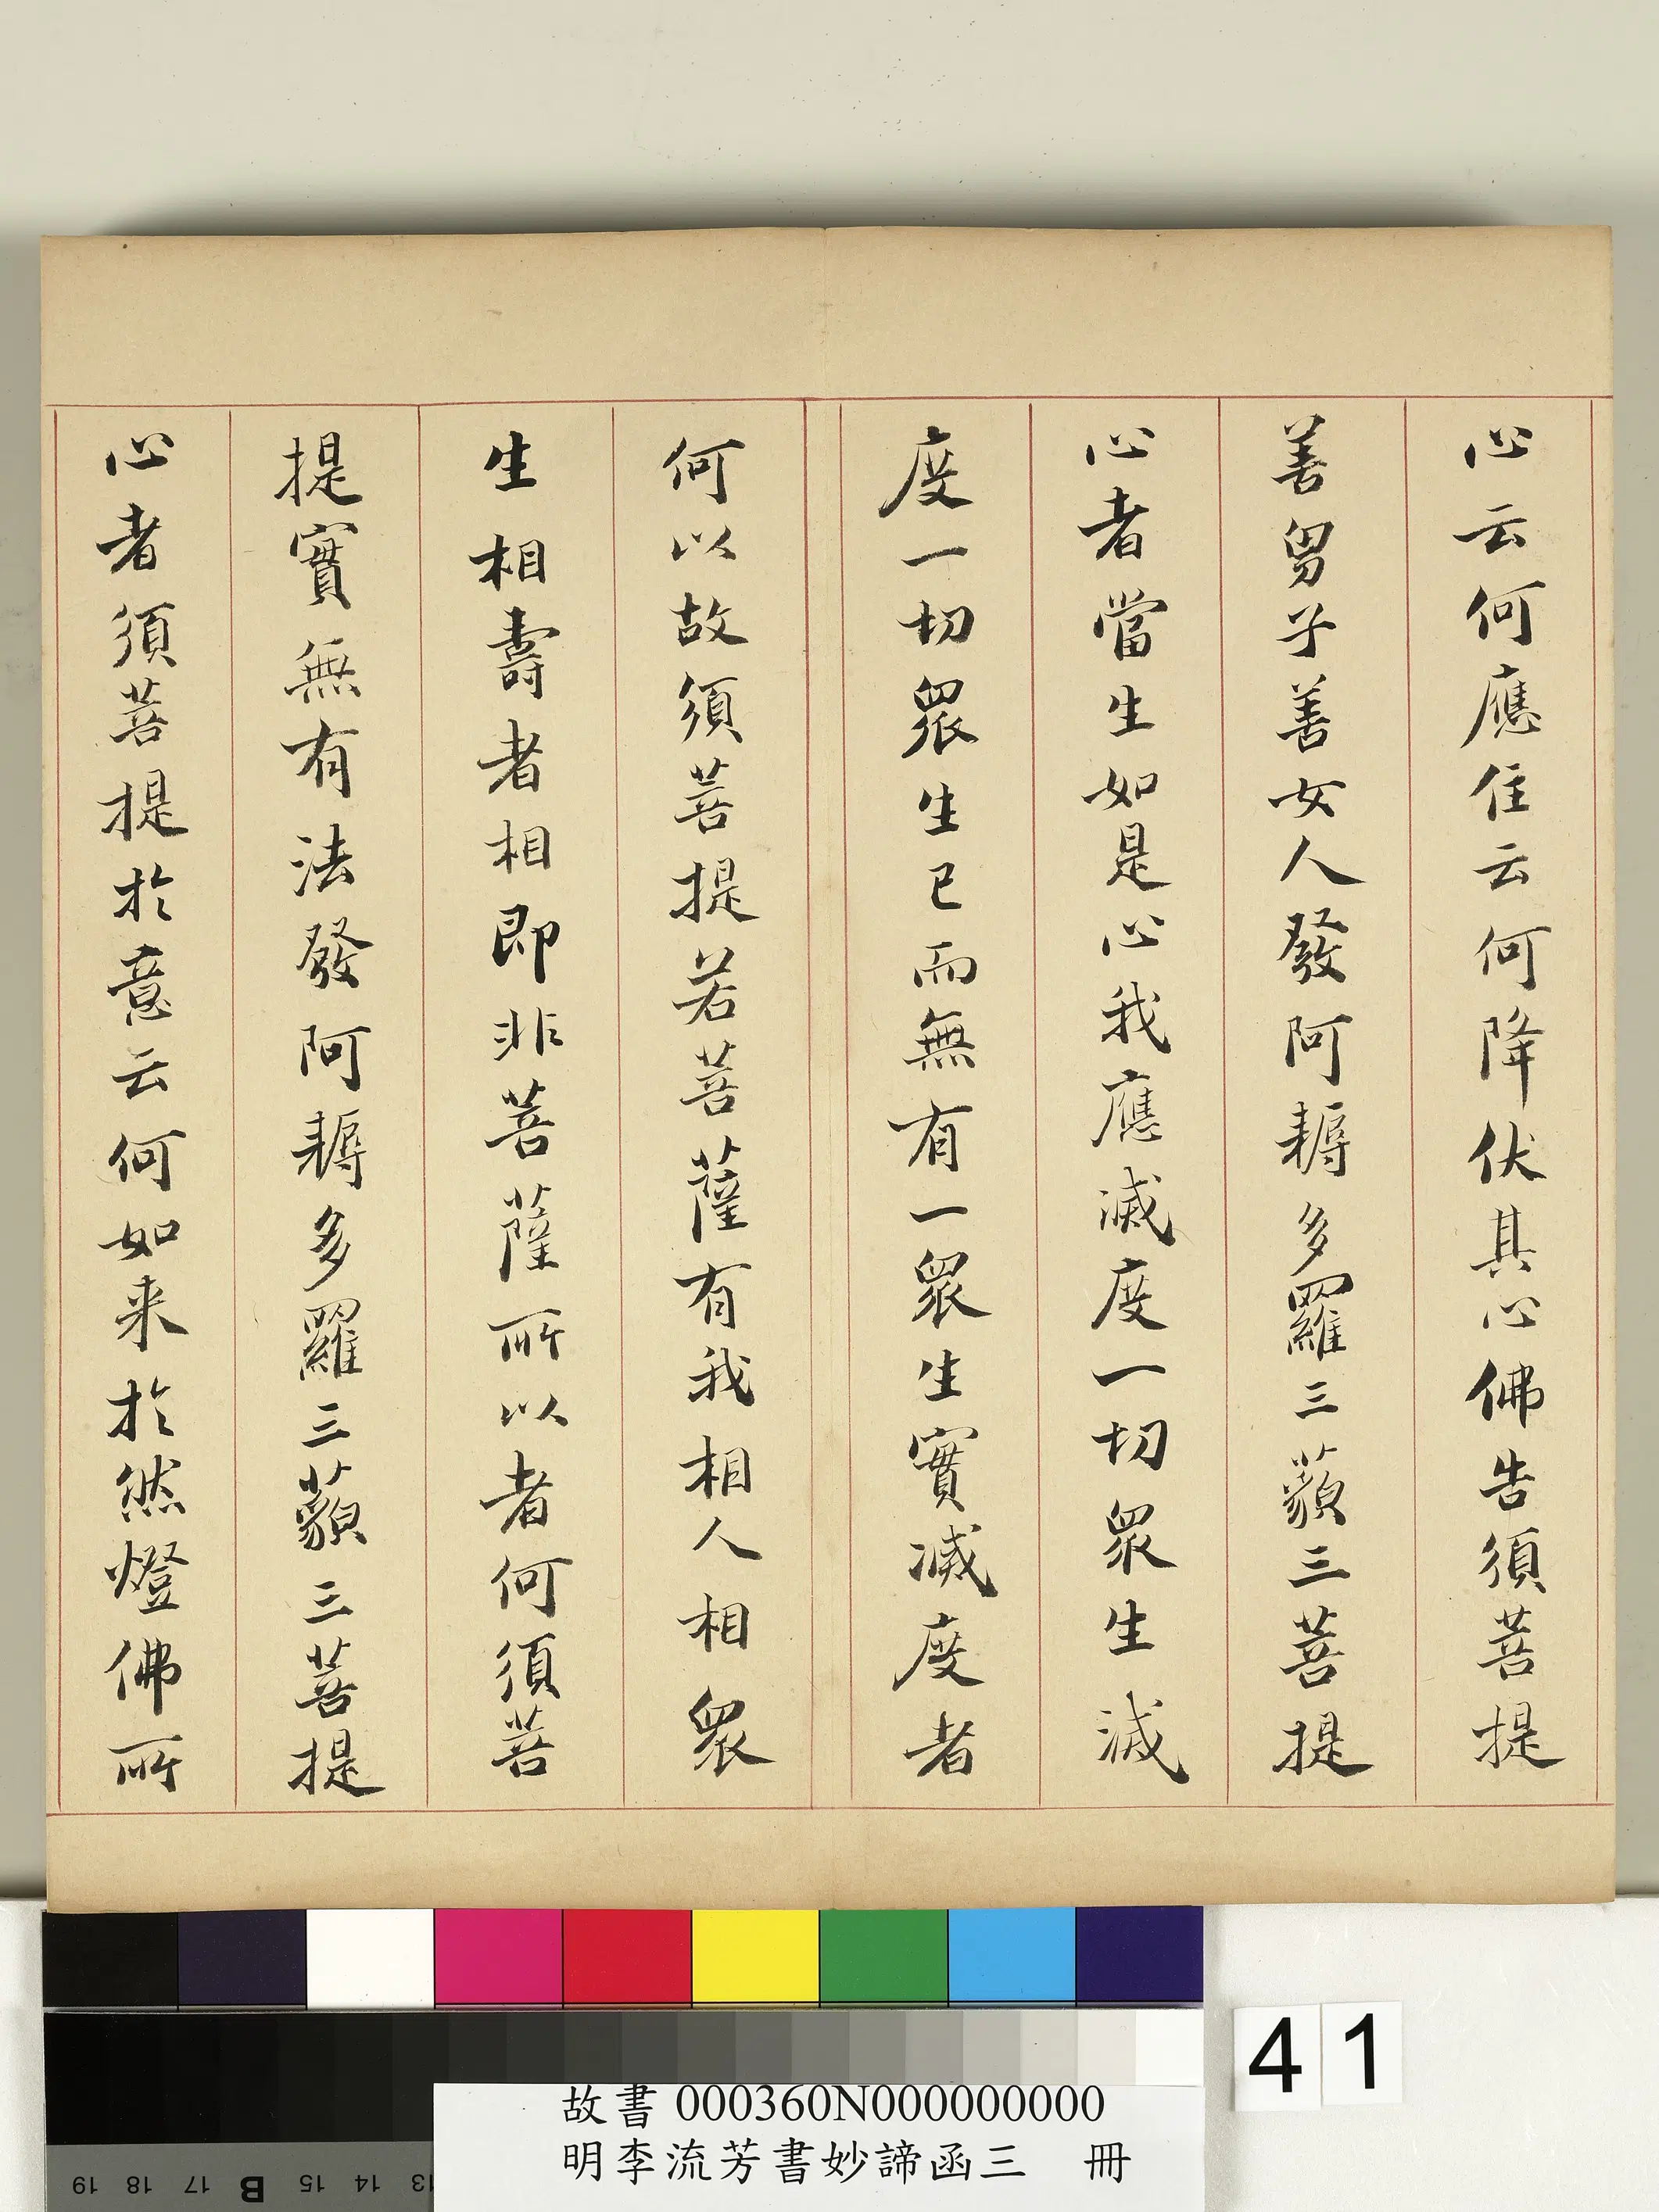 心云何應住云何降伏其心佛告須菩提
善男子善女人發阿耨多羅三藐三菩提
心者當生如是心我應滅度一切眾生滅
度一切眾生已而無有一眾生實滅度者
何以故須菩提若菩薩有我相人相眾
生相壽者相即非菩薩所以者何須菩
提實無有法發阿耨多羅三藐三菩提
心者須菩提於意云何如来於然燈佛所
41
故書 000360N000000000
明李流芳書妙諦函三 冊
19 18 17 B 15 14 13